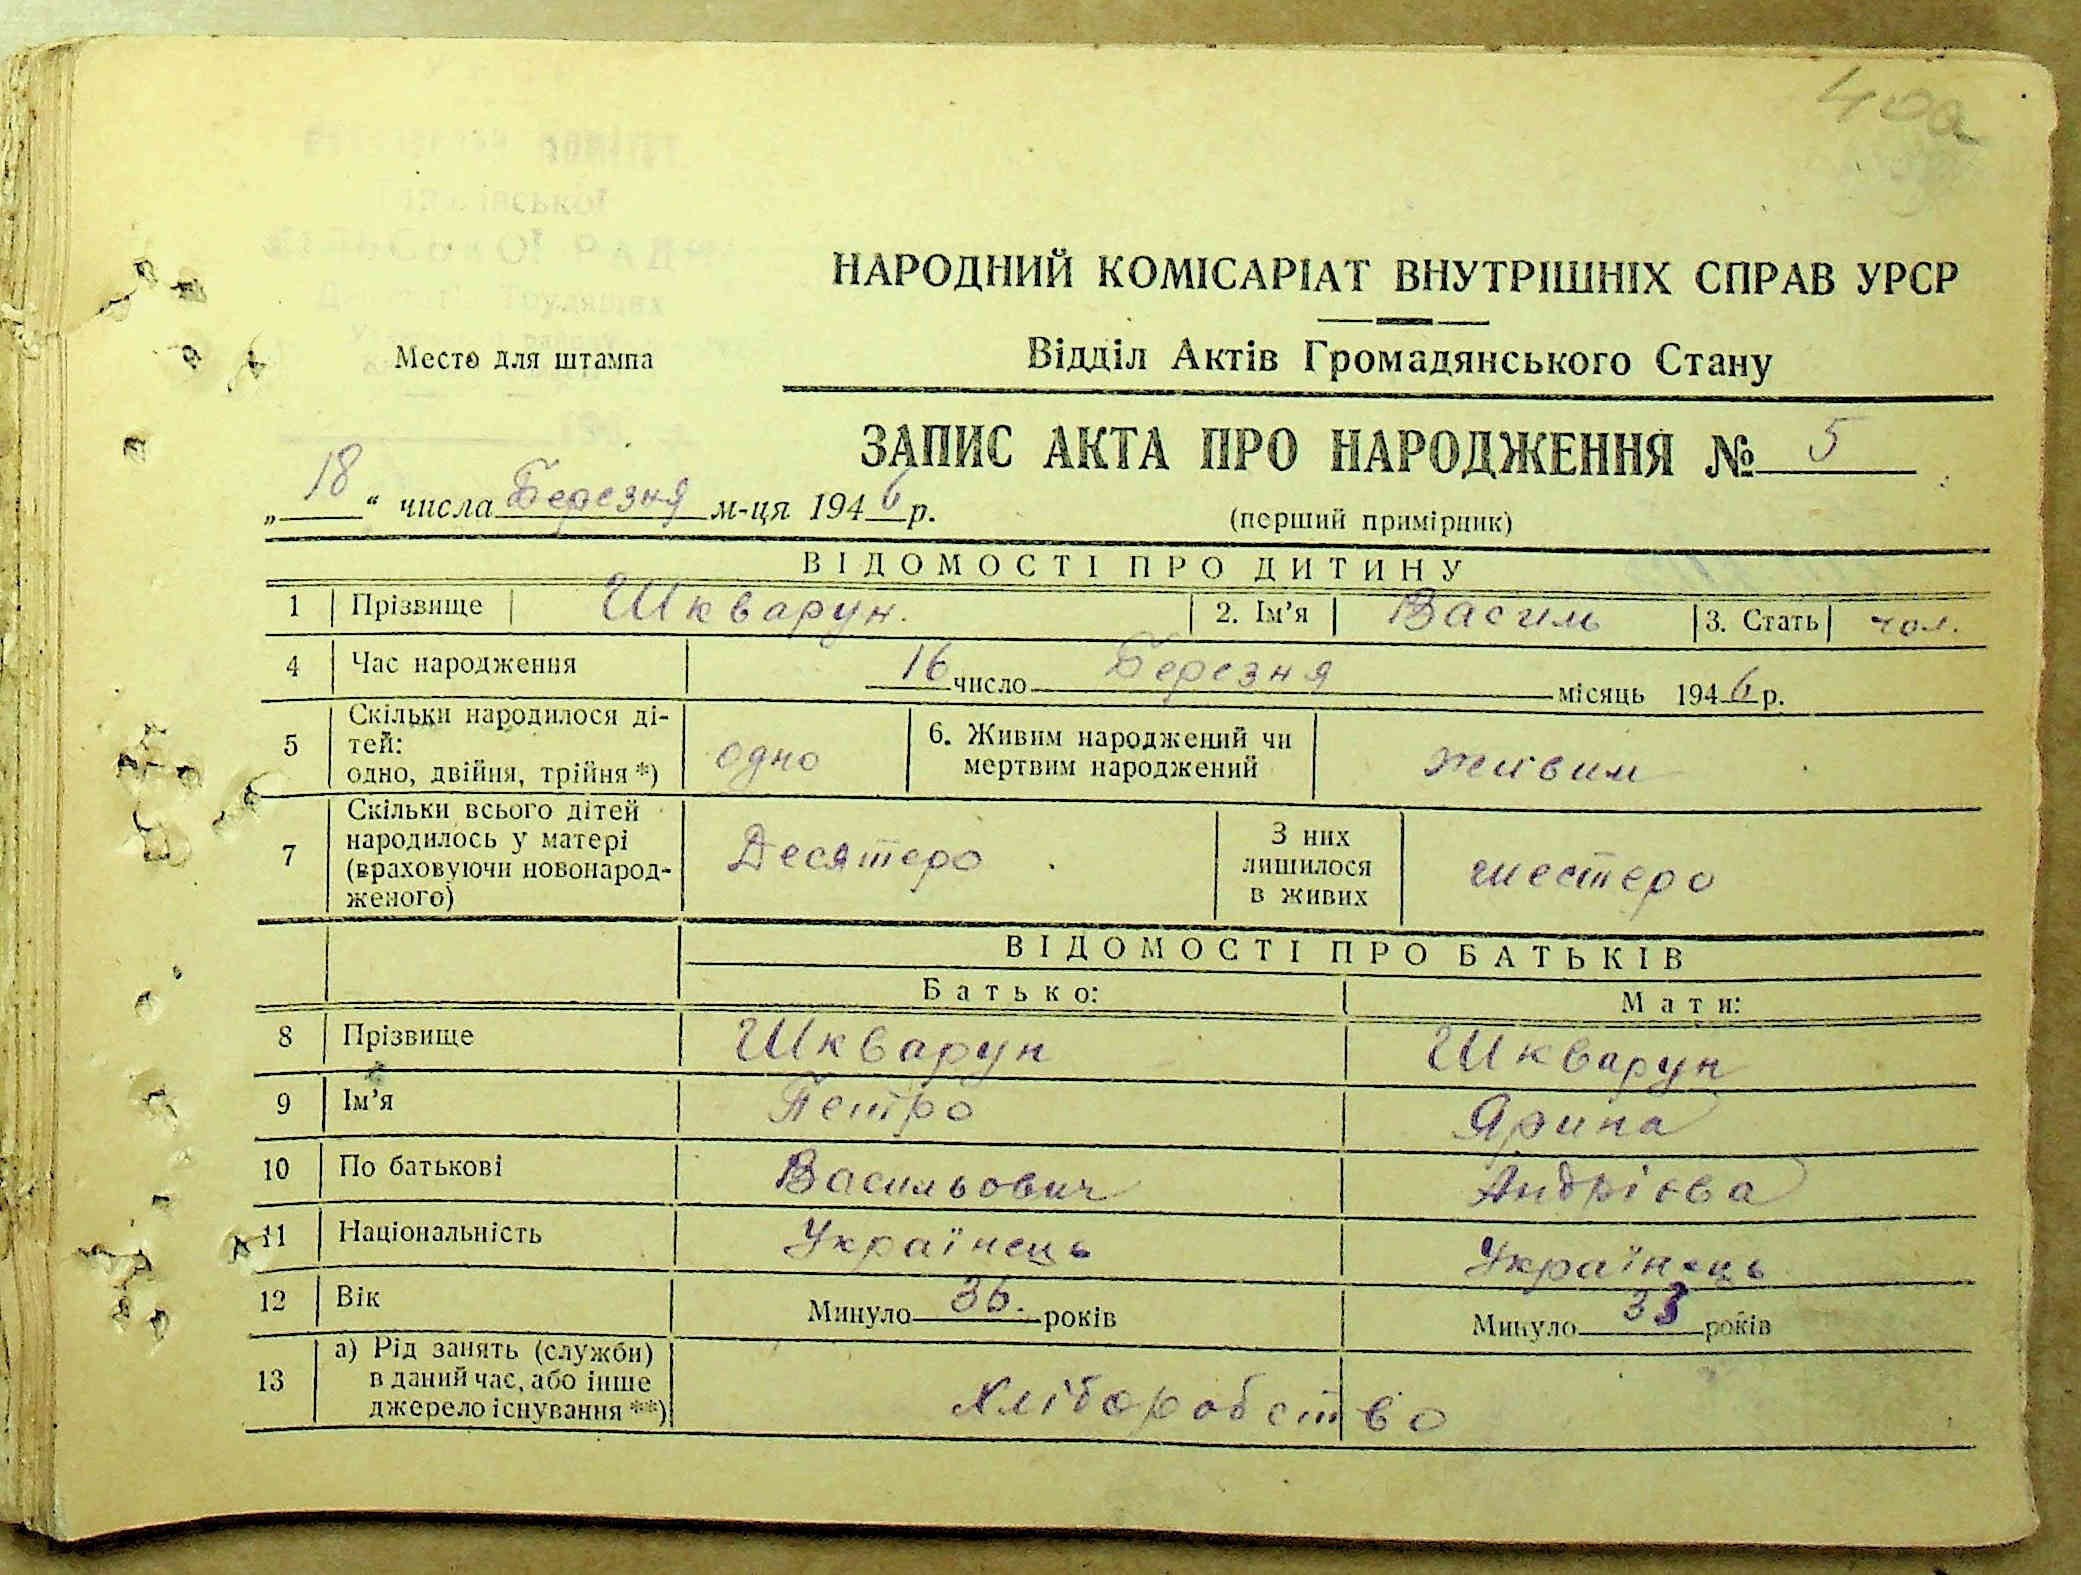 40а
НАРОДНИЙ КОМІСАРІАТ ВНУТРІШНІХ СПРАВ УРСР
Место для штампа
Відділ Актів Громадянського Стану
ЗАПИС АКТА ПРО НАРОДЖЕННЯ № 5
„18“ числа Березня м-ця 1946 р.
(перший примірник)
ВІДОМОСТІ ПРО ДИТИНУ
1 Прізвище Шкварун. 2. Ім'я Василь 3. Стать чол.
4 Час народження 16 число Березня місяць 1946 р.
5 Скільки народилося ді-
тей:
одно, двійня, трійня *) одно 6. Живим народжений чи
мертвим народжений живим
7 Скільки всього дітей
народилось у матері
(враховуючи новонарод-
женого) Десятеро З них
лишилося
в живих шестеро
ВІДОМОСТІ ПРО БАТЬКІВ
Батько: Мати:
8 Прізвище Шкварун Шкварун
9 Ім'я Петро Ярина
10 По батькові Васильович Андрієва
11 Національність Українець Українець
12 Вік Минуло 36. років Минуло 33 років
13 а) Рід занять (служби)
в даний час, або інше
джерело існування **) Хліборобство